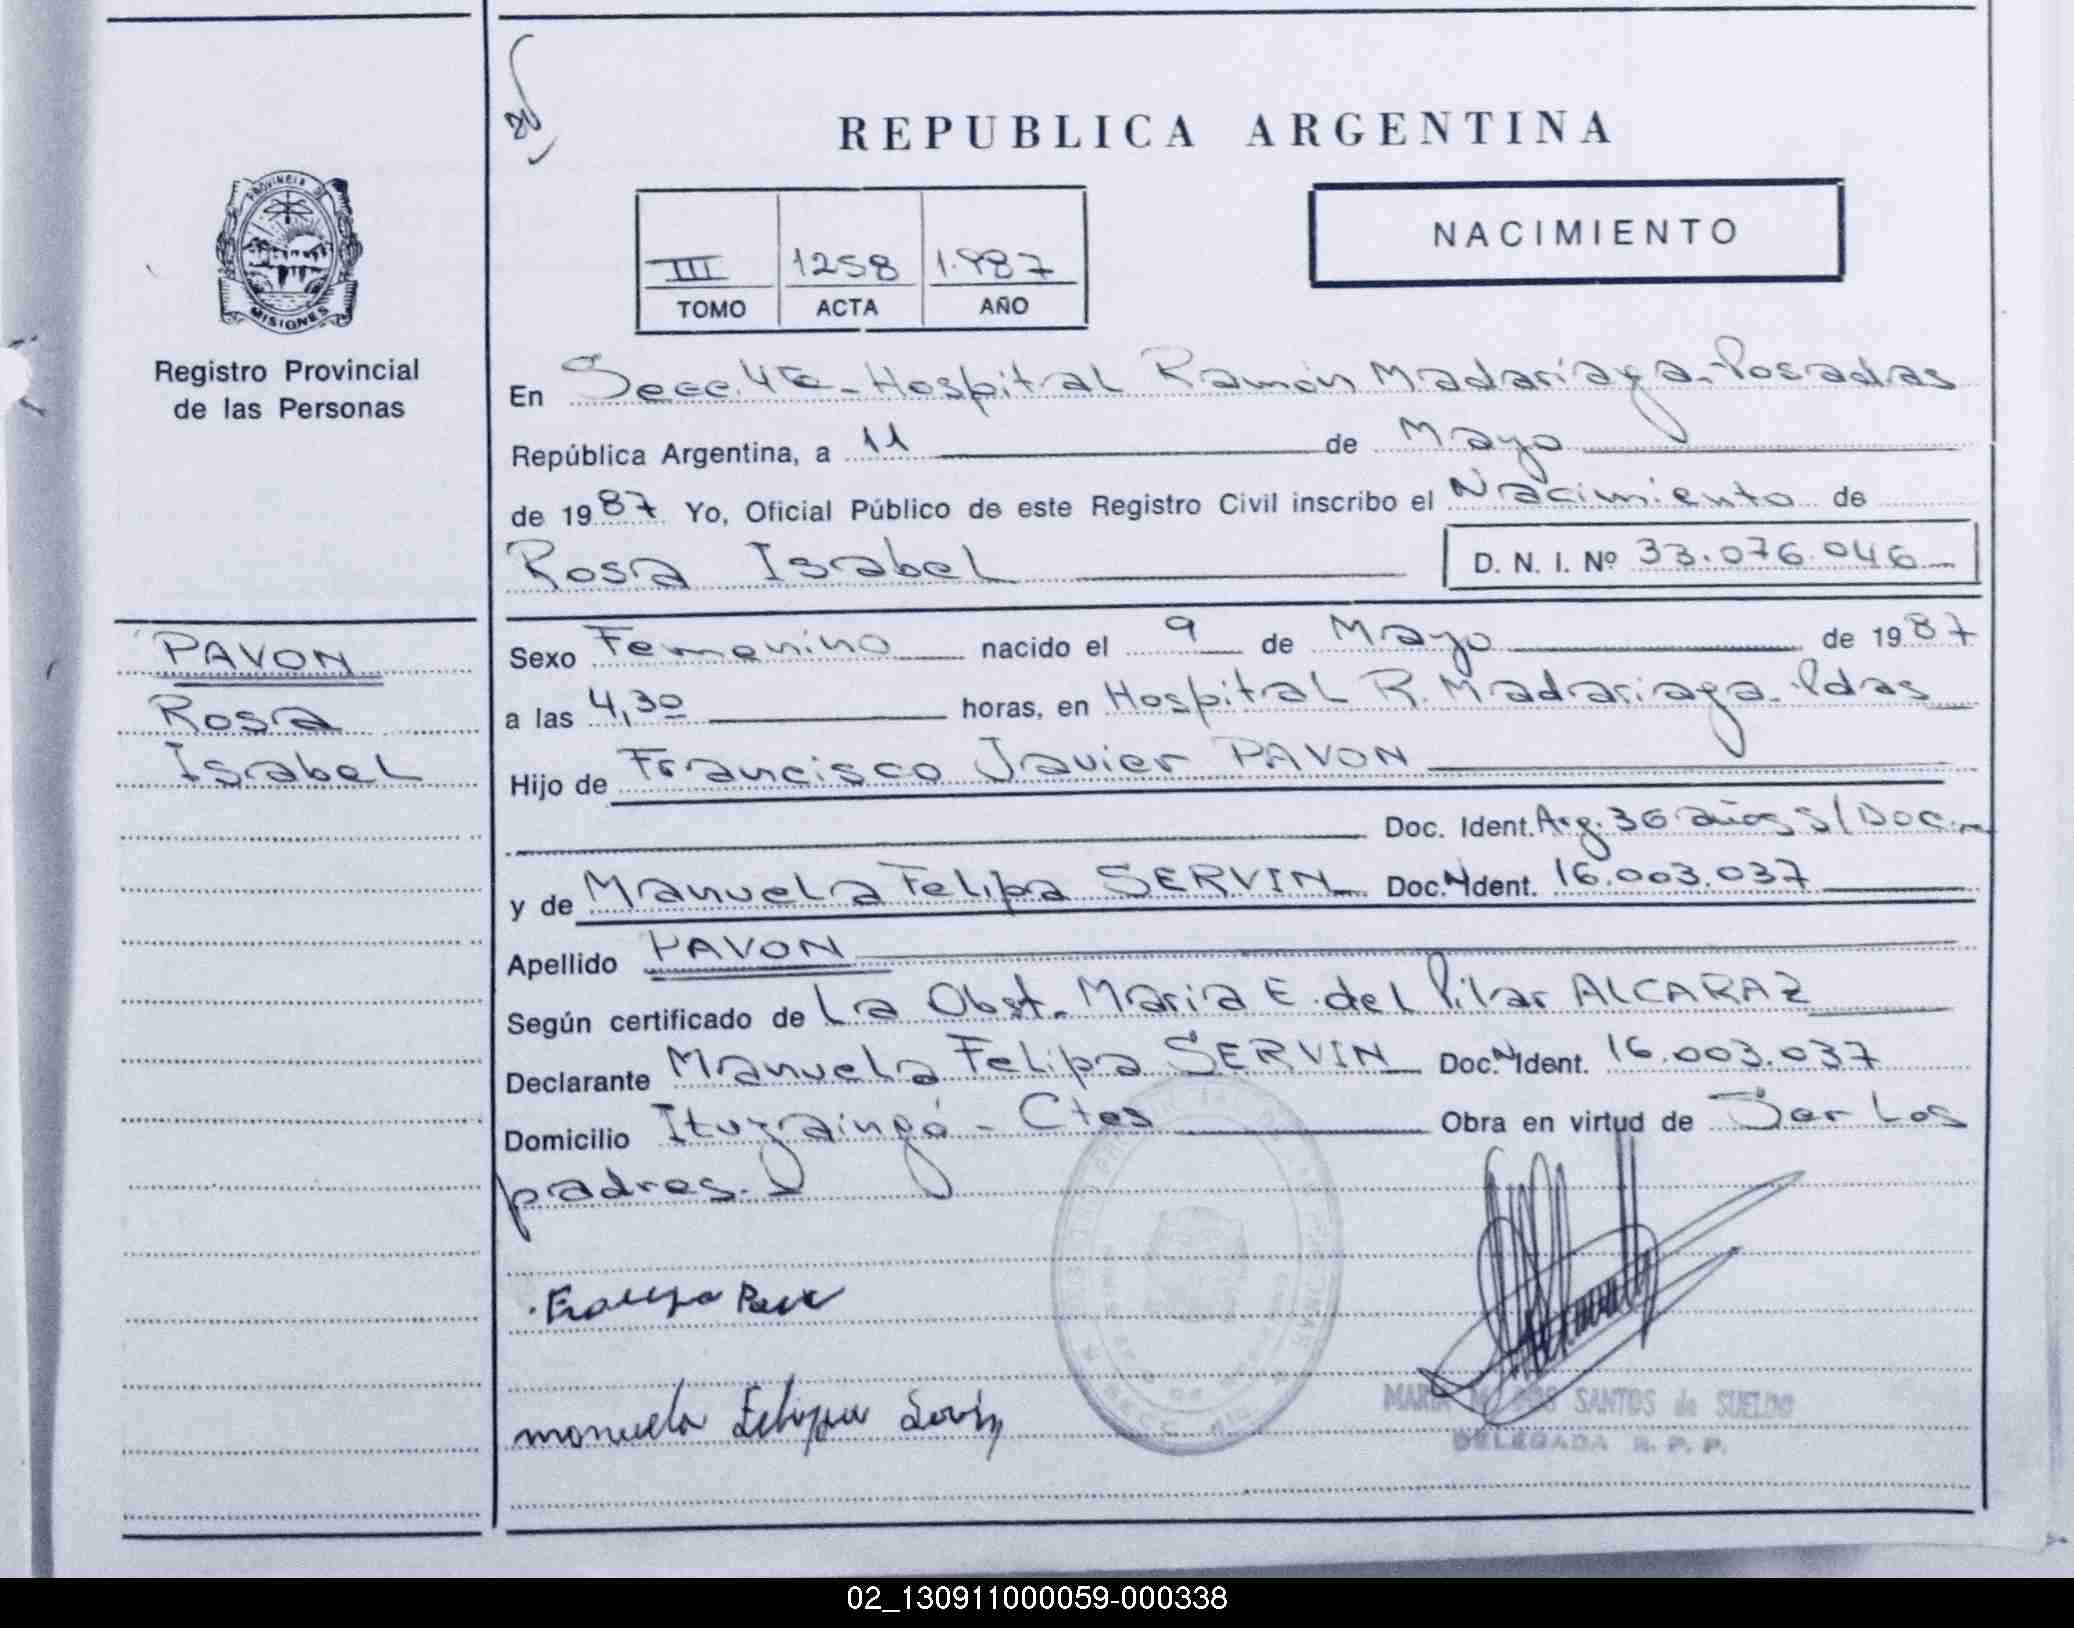 REPUBLICA ARGENTINA
NACIMIENTO
III 1258 1.987
TOMO ACTA AÑO
PROVINCIA DE
MISIONES
Registro Provincial
de las Personas
En Secc. 4ta - Hospital Ramón Madariaga - Posadas
República Argentina, a 11 de Mayo
de 1987 Yo, Oficial Público de este Registro Civil inscribo el Nacimiento de
Rosa Isabel D. N. I. Nº 33.076.046
PAVON
Rosa
Isabel
Sexo Femenino nacido el 9 de Mayo de 1987
a las 4,30 horas, en Hospital R. Madariaga - Pdas
Hijo de Francisco Javier PAVON
Doc. Ident. Arg. 36 años S/Doc.
y de Manuela Felipa SERVIN Doc. N Ident. 16.003.037
Apellido PAVON
Según certificado de La Obst. Maria E. del Pilar ALCARAZ
Declarante Manuela Felipa SERVIN Doc. N Ident. 16.003.037
Domicilio Ituzaingó - Ctes Obra en virtud de Ser los
padres.
manuela Felipa Servin
MARIA DOS SANTOS de SUELDO
DELEGADA R. P. P.
02_130911000059-000338